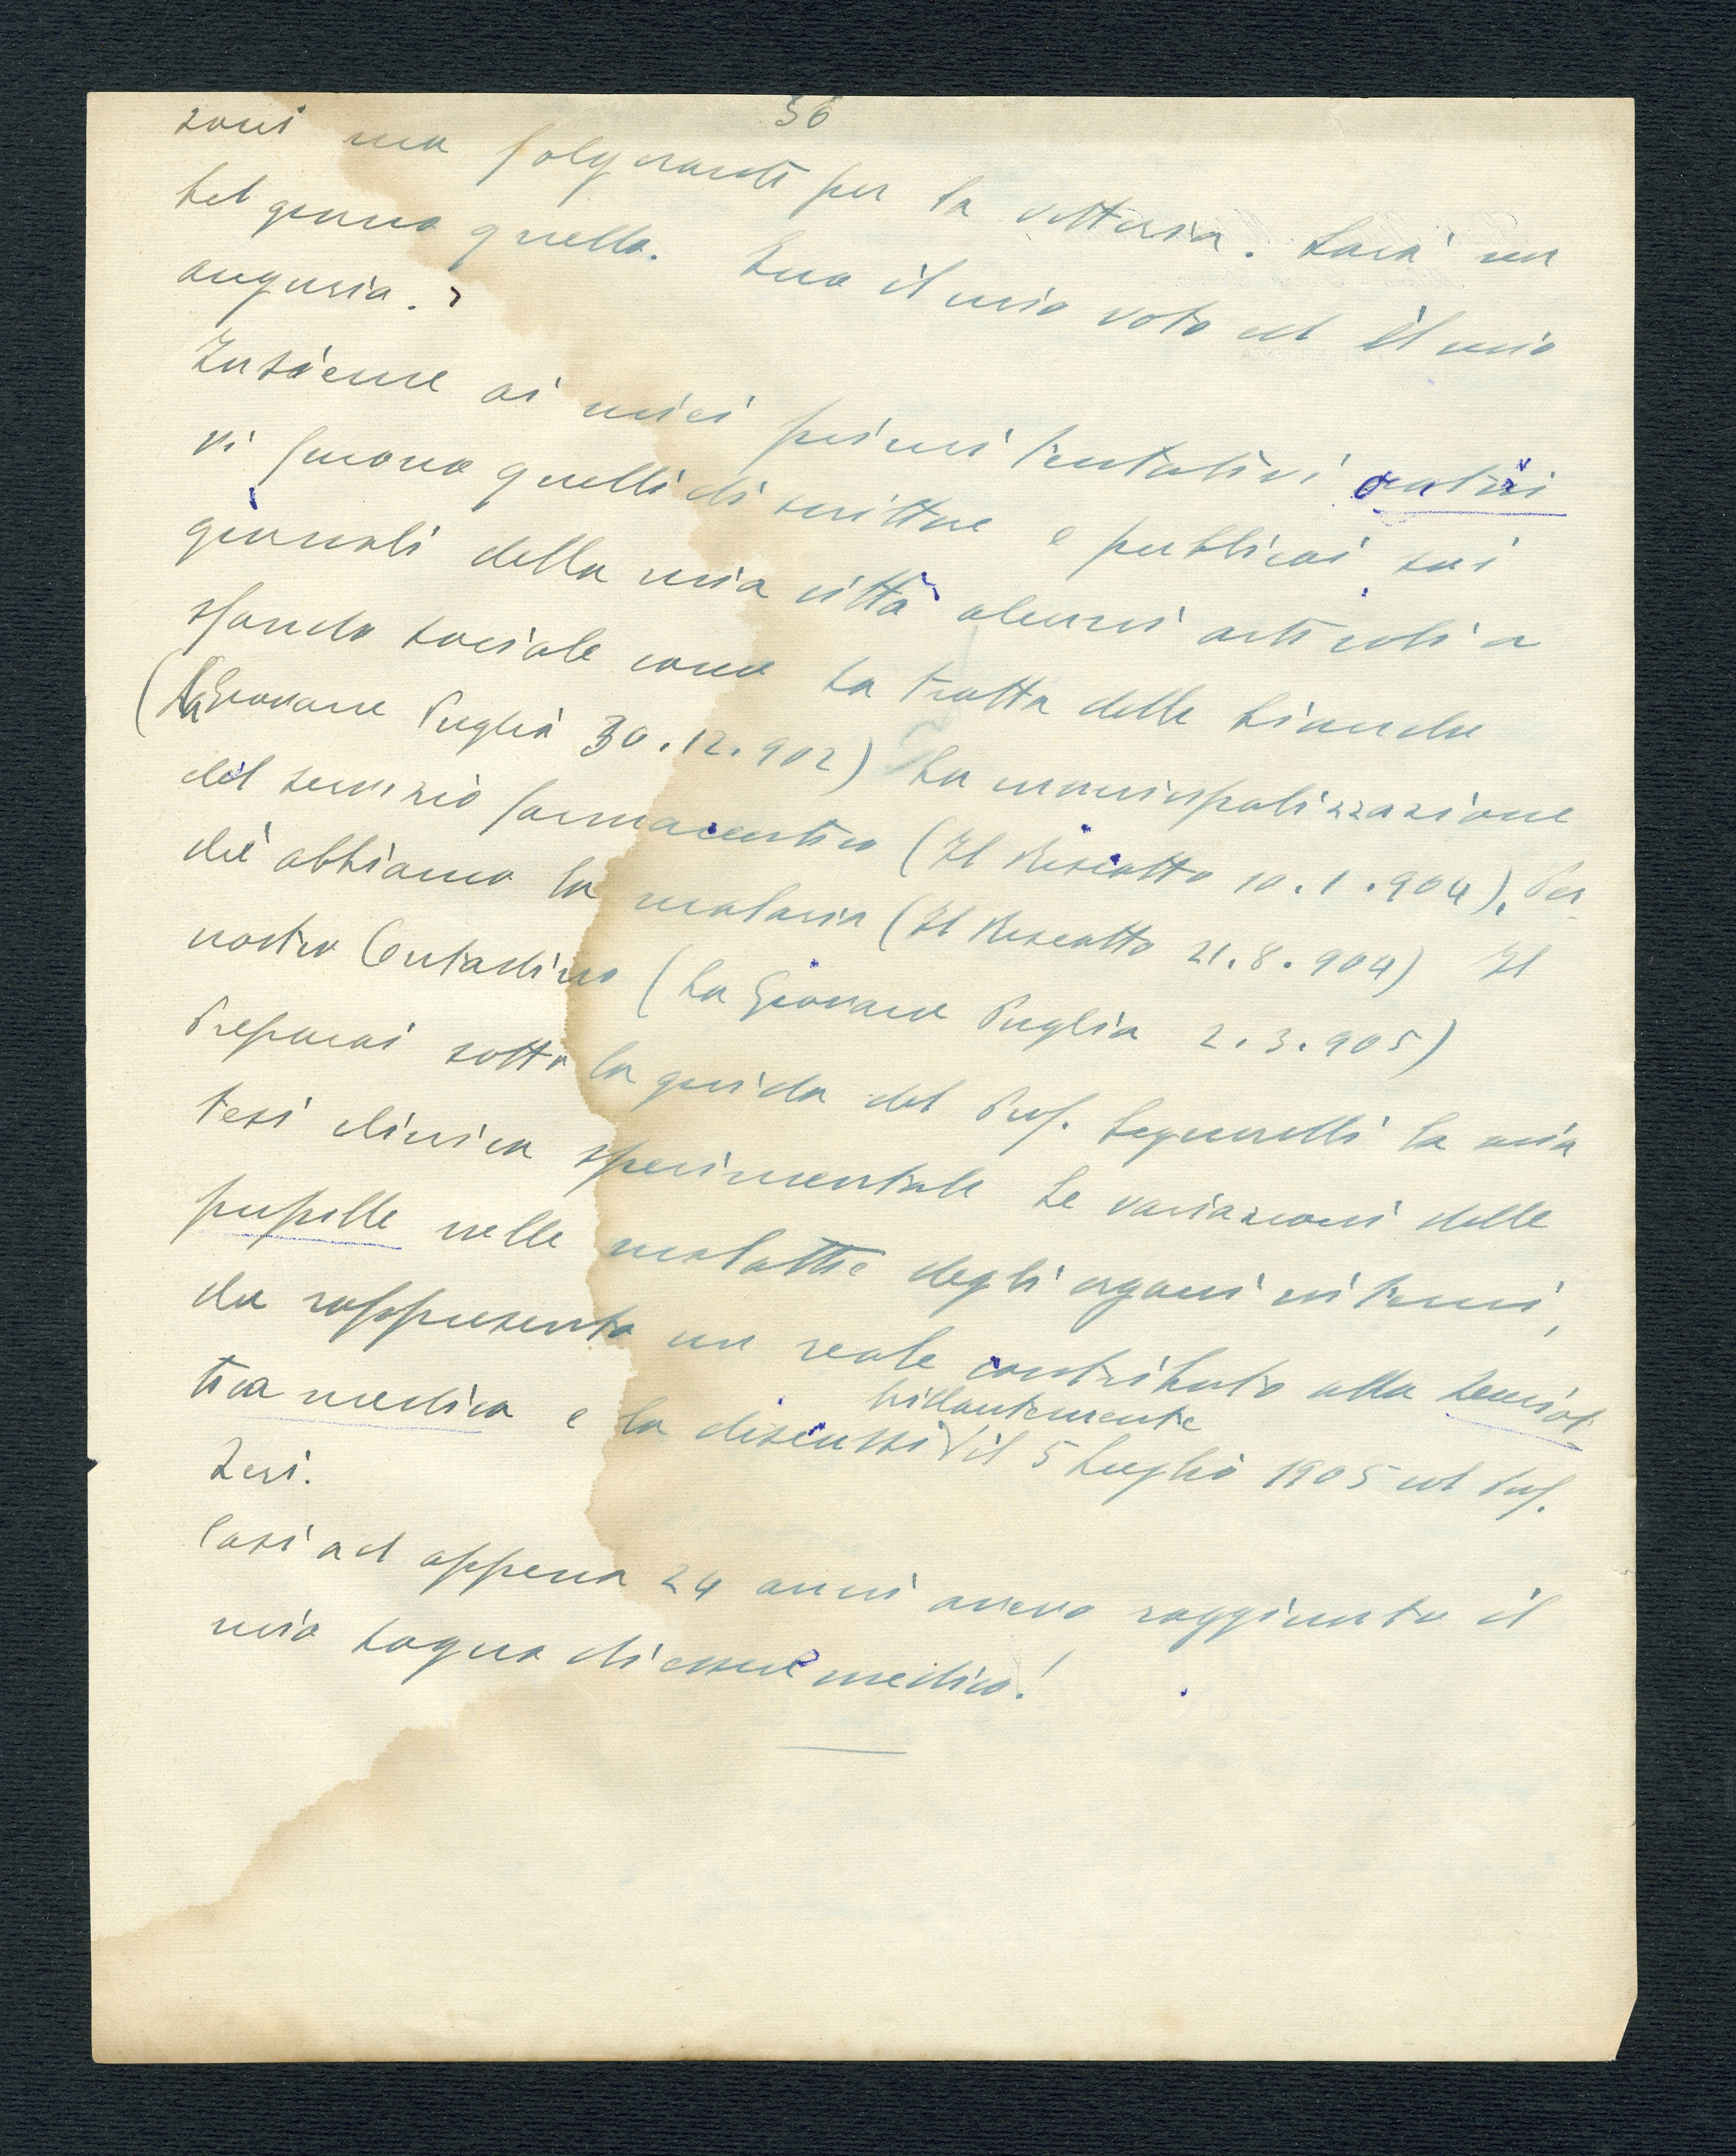 36
zoni ma folgorante per la vittoria. Sarà un
bel giorno quello. Ecco il mio voto ed il mio
augurio.»
Insieme ai miei primi tentativi oratori
vi furono quelli di scrittore e pubblicai sui
giornali della mia città alcuni articoli a
sfondo sociale come La tratta delle bianche
(La Giovane Puglia 30.12.902) La municipalizzazione
del servizio farmaceutico (Il Riscatto 10.1.904), Per
chè abbiamo la malaria (Il Riscatto 21.8.904) Il
nostro Contadino (La Giovane Puglia 2.3.905)
Preparai sotto la guida del Prof. la mia
tesi clinica sperimentale Le variazioni delle
pupille nelle malattie degli organi interni,
che rappresenta un reale contributo alla Semeiot
tica medica e la discussi brillantemente il 5 Luglio 1905 col Prof.
Zeri.
Così ad appena 24 anni avevo raggiunto il
mio sogno di essere medico!